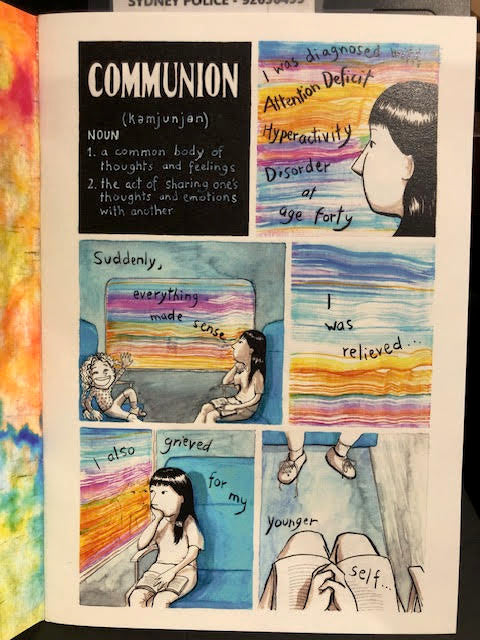 SYDNEY POLICE - 92656499
COMMUNION
(kəmjunjən)
NOUN
1. a common body of
thoughts and feelings
2. the act of sharing one's
thoughts and emotions
with another
I was diagnosed
Attention Deficit
Hyperactivity
Disorder
at
age forty
Suddenly,
everything
made sense
I
was
relieved...
I also grieved
for my
younger
self...